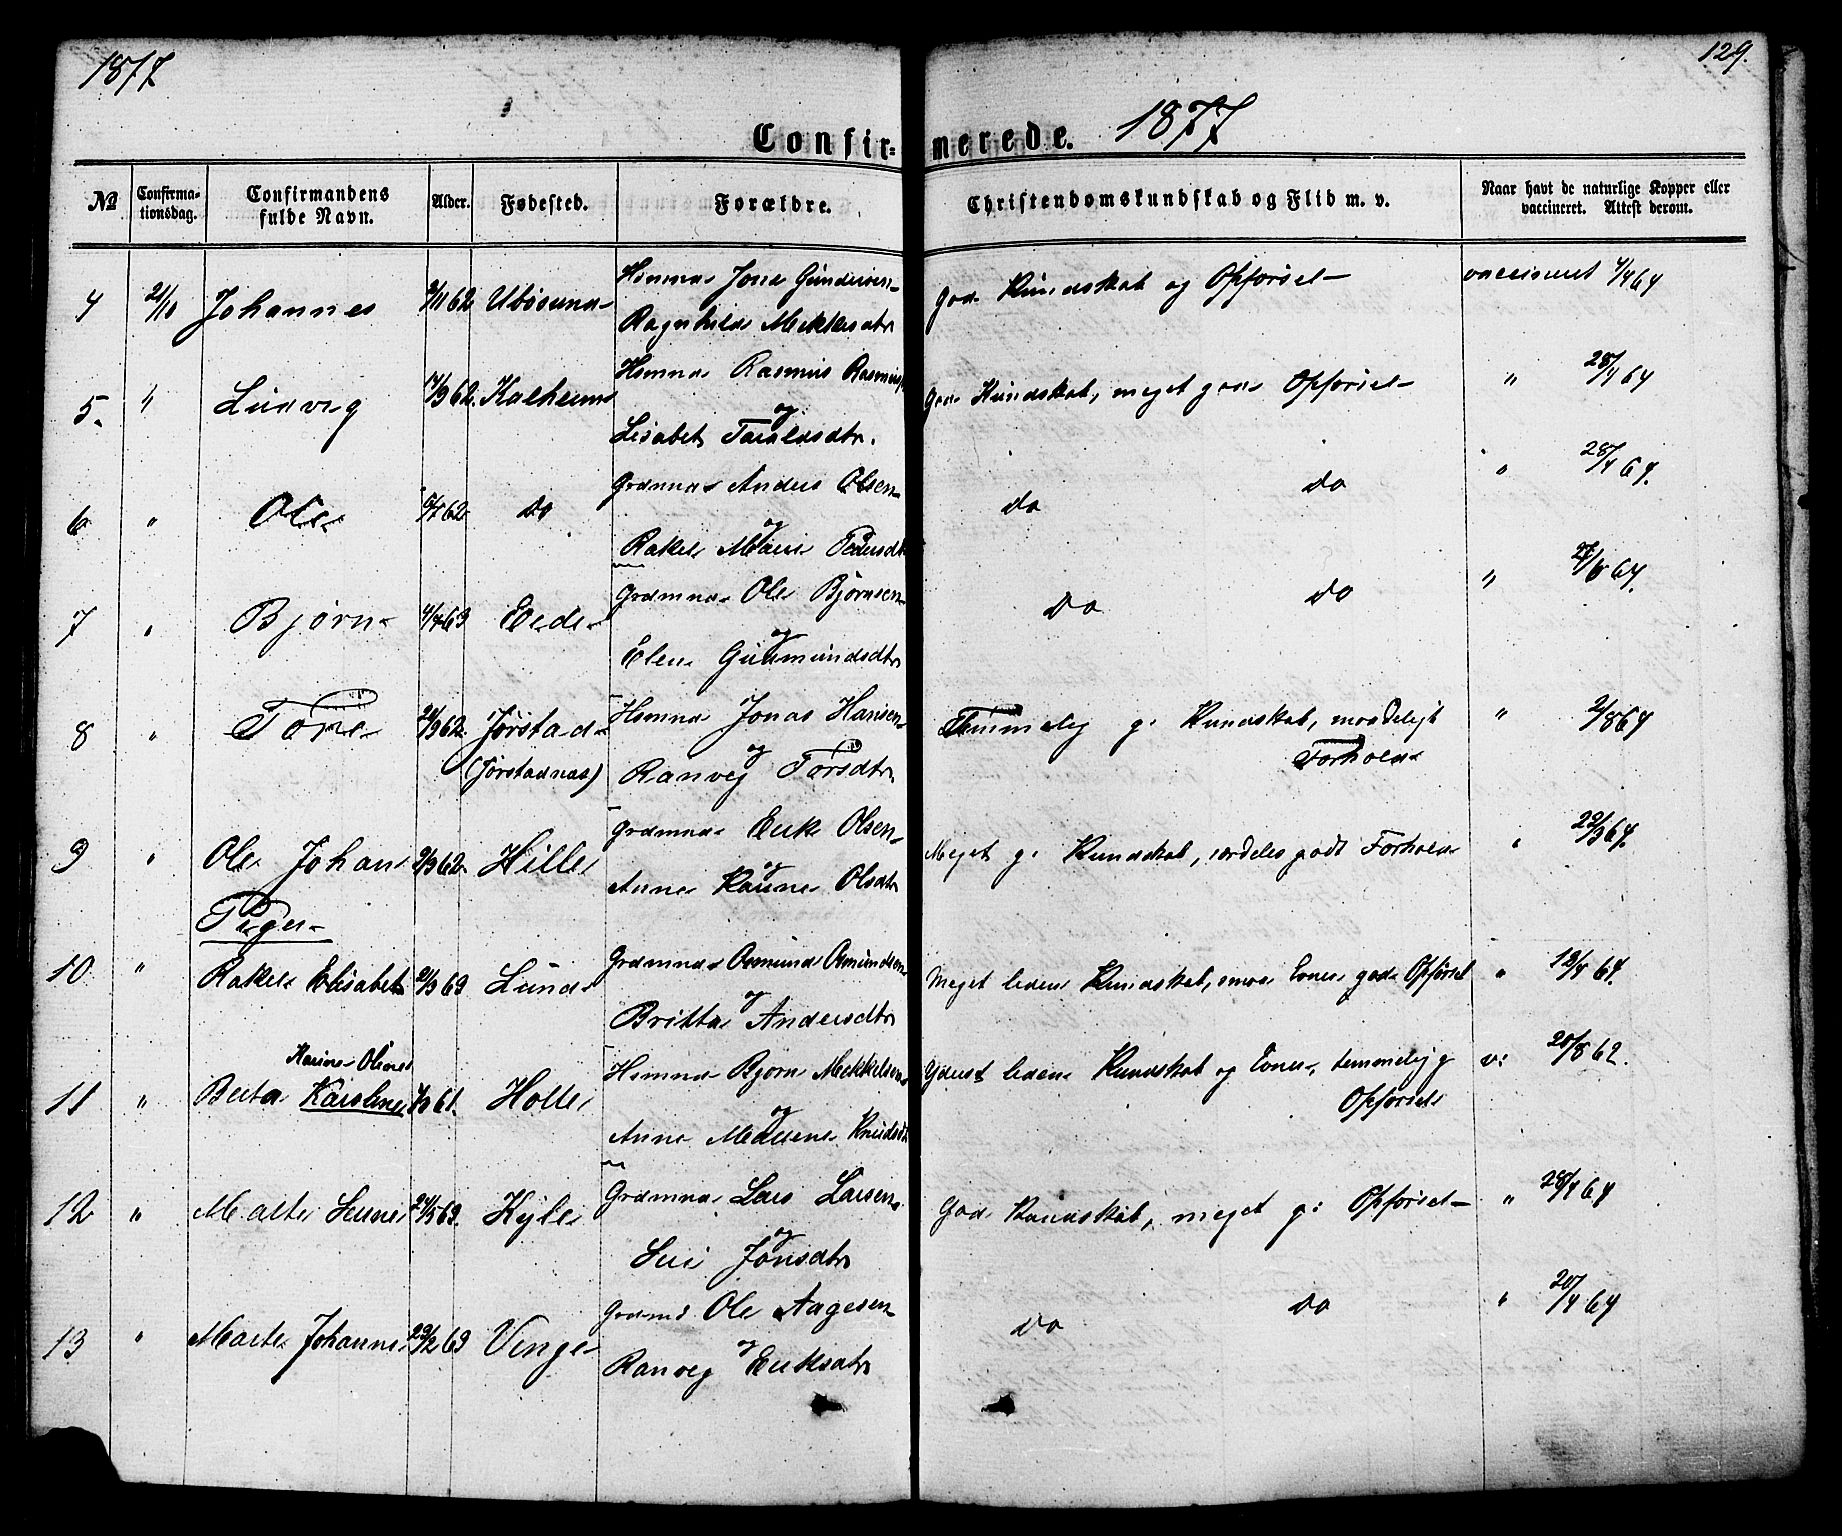 1877
129.
Confirmerede. 1877
№ Confirmationsdag. Confirmandens fulde Navn. Alder. Fødested. Forældre. Christendomskundskab og Flid m. v. Naar havt de naturlige Kopper eller vaccineret. Attest derom.
4 21/10 Johannes 62 Ubøsund Hmmd Jone Gundersen
Ragnhild Mikkelsdtr
God Kundskab og Opførsel vaccineret 4/4 64
5. " Ludvig 62. Kalheim Hmmd Rasmus
og
Lisabet Taraldsdtr.
God Kundskab, meget god Opførsel " 28/4 64
6 " Ole 62 do Grdmnd Anders Olsen
og
Rakel Marie Pedersdtr
do do " 28/4 64.
7 " Bjørn 4/4 63 Eede Grdmnd Ole Bjørnsen
og
Elen Gudmundsdtr
do do " 64.
8 " Tore 62. Jørstad Hmmd Jonas Hansen
(Jørstadnæs) og
Ranveg Torsdtr
Temmelig g: Kundskab, " 2/8 64
Forhold
9 " Ole Johan 62 Hille Grdmnd Erik Olsen
og
Anne Olsdtr
Meget g: Kundskab, særdeles godt Forhold " 22/9 64.
Piger
10 " Rakel Elisabet 63 Lund Grdmnd Osmund Osmundsen
og
Britta Andersdtr
Meget liden Kundskab, smaa Evner god Opførsel " 64.
11 " Karine Oline
Berta Karoline 61. Holle Hmmd Bjørn Mikkelsen
og
Anne Knudsdtr
Yderst liden Kundskab og Evner, temmelig g v: 20/8 62.
Opførsel
12 " Malte 24/5 63. Kyle Grdmnd Lars Larsen
og
Siri Jonsdtr
God Kundskab, meget g: Opførsel " 28/4 64
13 " Marte Johanne 23/2 63 Venge Grdmd Ole Aagesen
og
Ranveg Eriksdtr
do do " 20/4 64